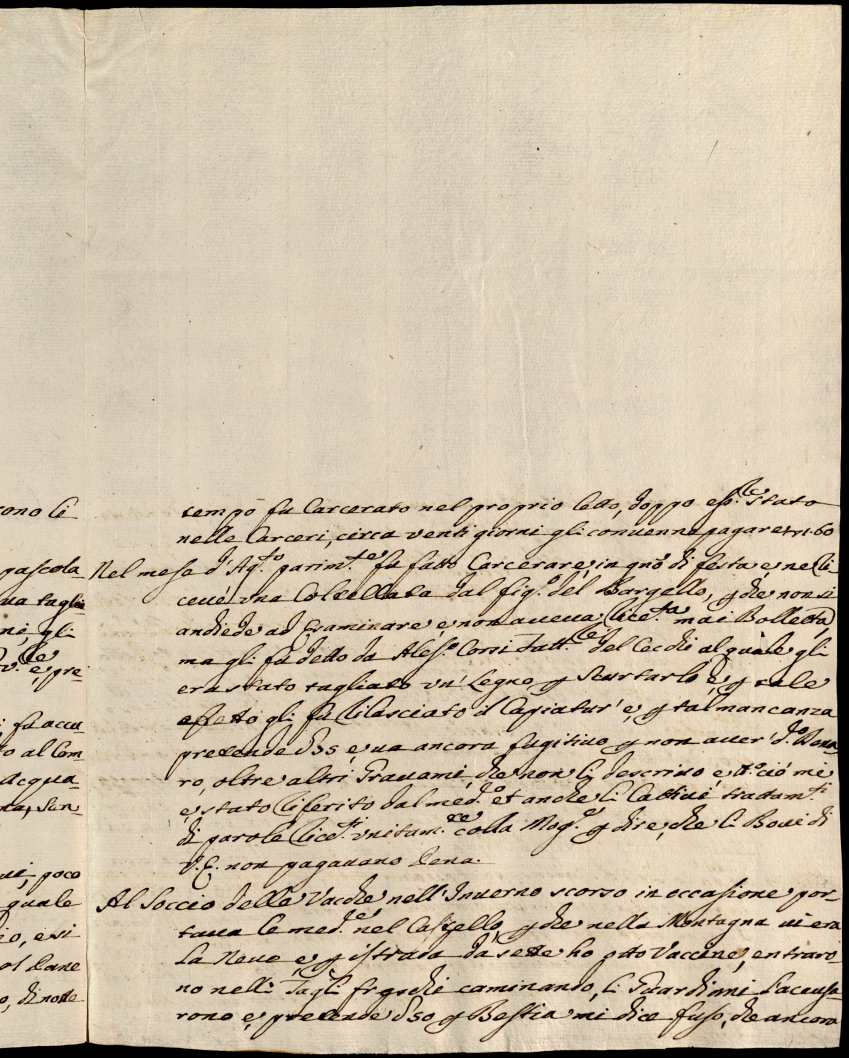 cono li
pascola
ua taglia
ni gli
e pre
fu accu
to al Com
Acqua
poco
quale
io, e si
ol Cane
o, di notte
tempo fu Carcerato nel proprio letto, doppo esser Stato
nelle Carceri, circa venti giorni gli convenne pagare 60
Nel mese d'Ag.to parim.te fu fatto Carcerare, in gno di festa e ne Ri
cevé vna Coltellata dal fig.o del Bargello, p che non si
andiede ad Esaminare e non aveva, Rice.ta mai Bolletta,
ma gli fu detto da Aless.o Corsi Fatt.re del Cecchi al quale gli
era stato tagliato vn' Legno p Scurtarlo e p tale
effetto gli fu Rilasciato il Capiatur' e, p tal mancanza
pretende e ua ancora fugitiuo p non auer' d.o Dena
ro, oltre altri Grauami, che non li descriuo e t.o ció mi
e, stato Riferito dal med.o et anche li Cattiui trattam.ti
di parole Rice.ti vnitam.te colla Mog.e p dire, che li Boui di
V.E. non pagauano Pena.
Al Soccio delle Vacche nell' Inuerno scorso in occasione por
taua le med.e nel Castello, p che nella Montagna ui era
La Neue e, p istrada da sette ho otto Vaccine, entraro
no nelli Tagli freschi caminando, li Guardiani l'accusa
rono e, pretende p Bestia mi dice fuso, che ancora